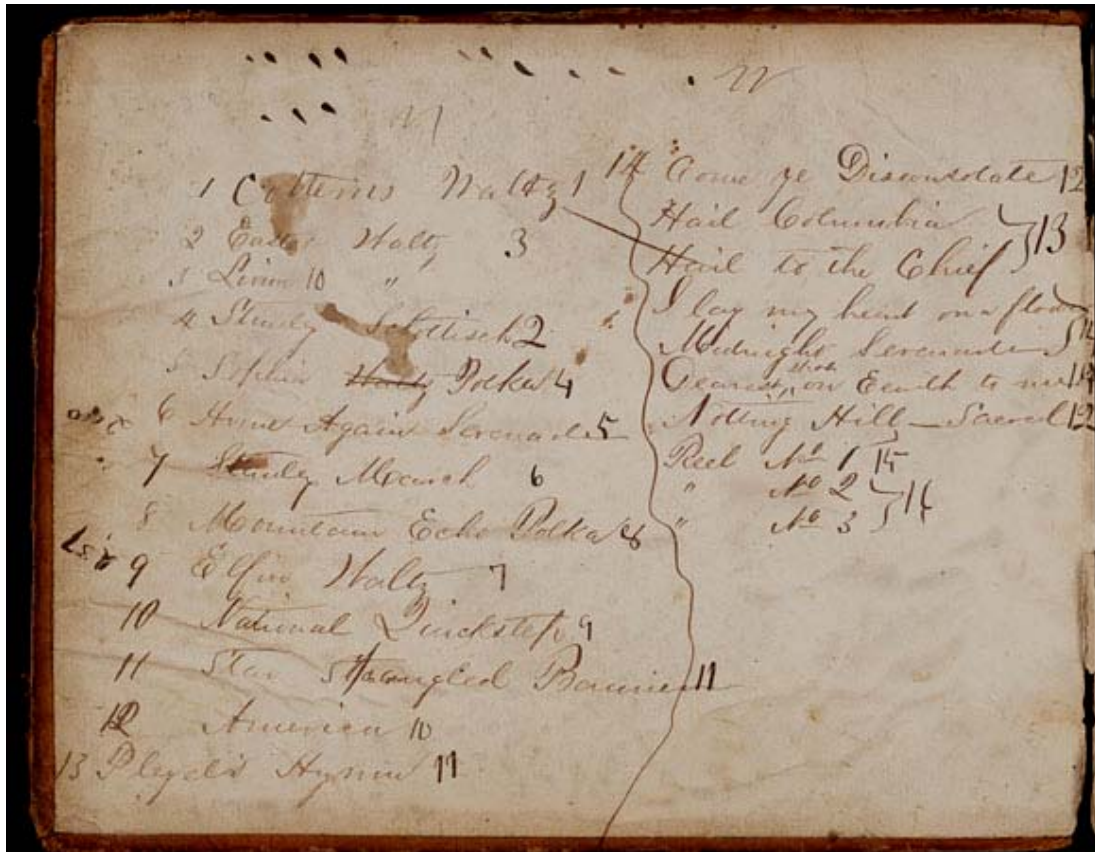 1 Waltz 1
2 Easter Waltz 3
3 10 "
4 Steady Schottisch 2
5 Sophia Waltz Polka 4
6 Home Again Serenade 5
7 Steady March 6
8 Mountain Echo Polka 8
9 Elfin Waltz 7
10 National Quickstep 9
11 Star Spangled Banner 11
12 America 10
13 Pleyel's Hymn 11
14 Come ye Disconsolate 12
Hail Columbia
Hail to the Chief } 13
I lay my head on a
Midnight Serenade } 14
Dearest on Earth to me 14
Notting Hill — Sacred 12
Reel No 1 15
" No 2
" No 3 } 14